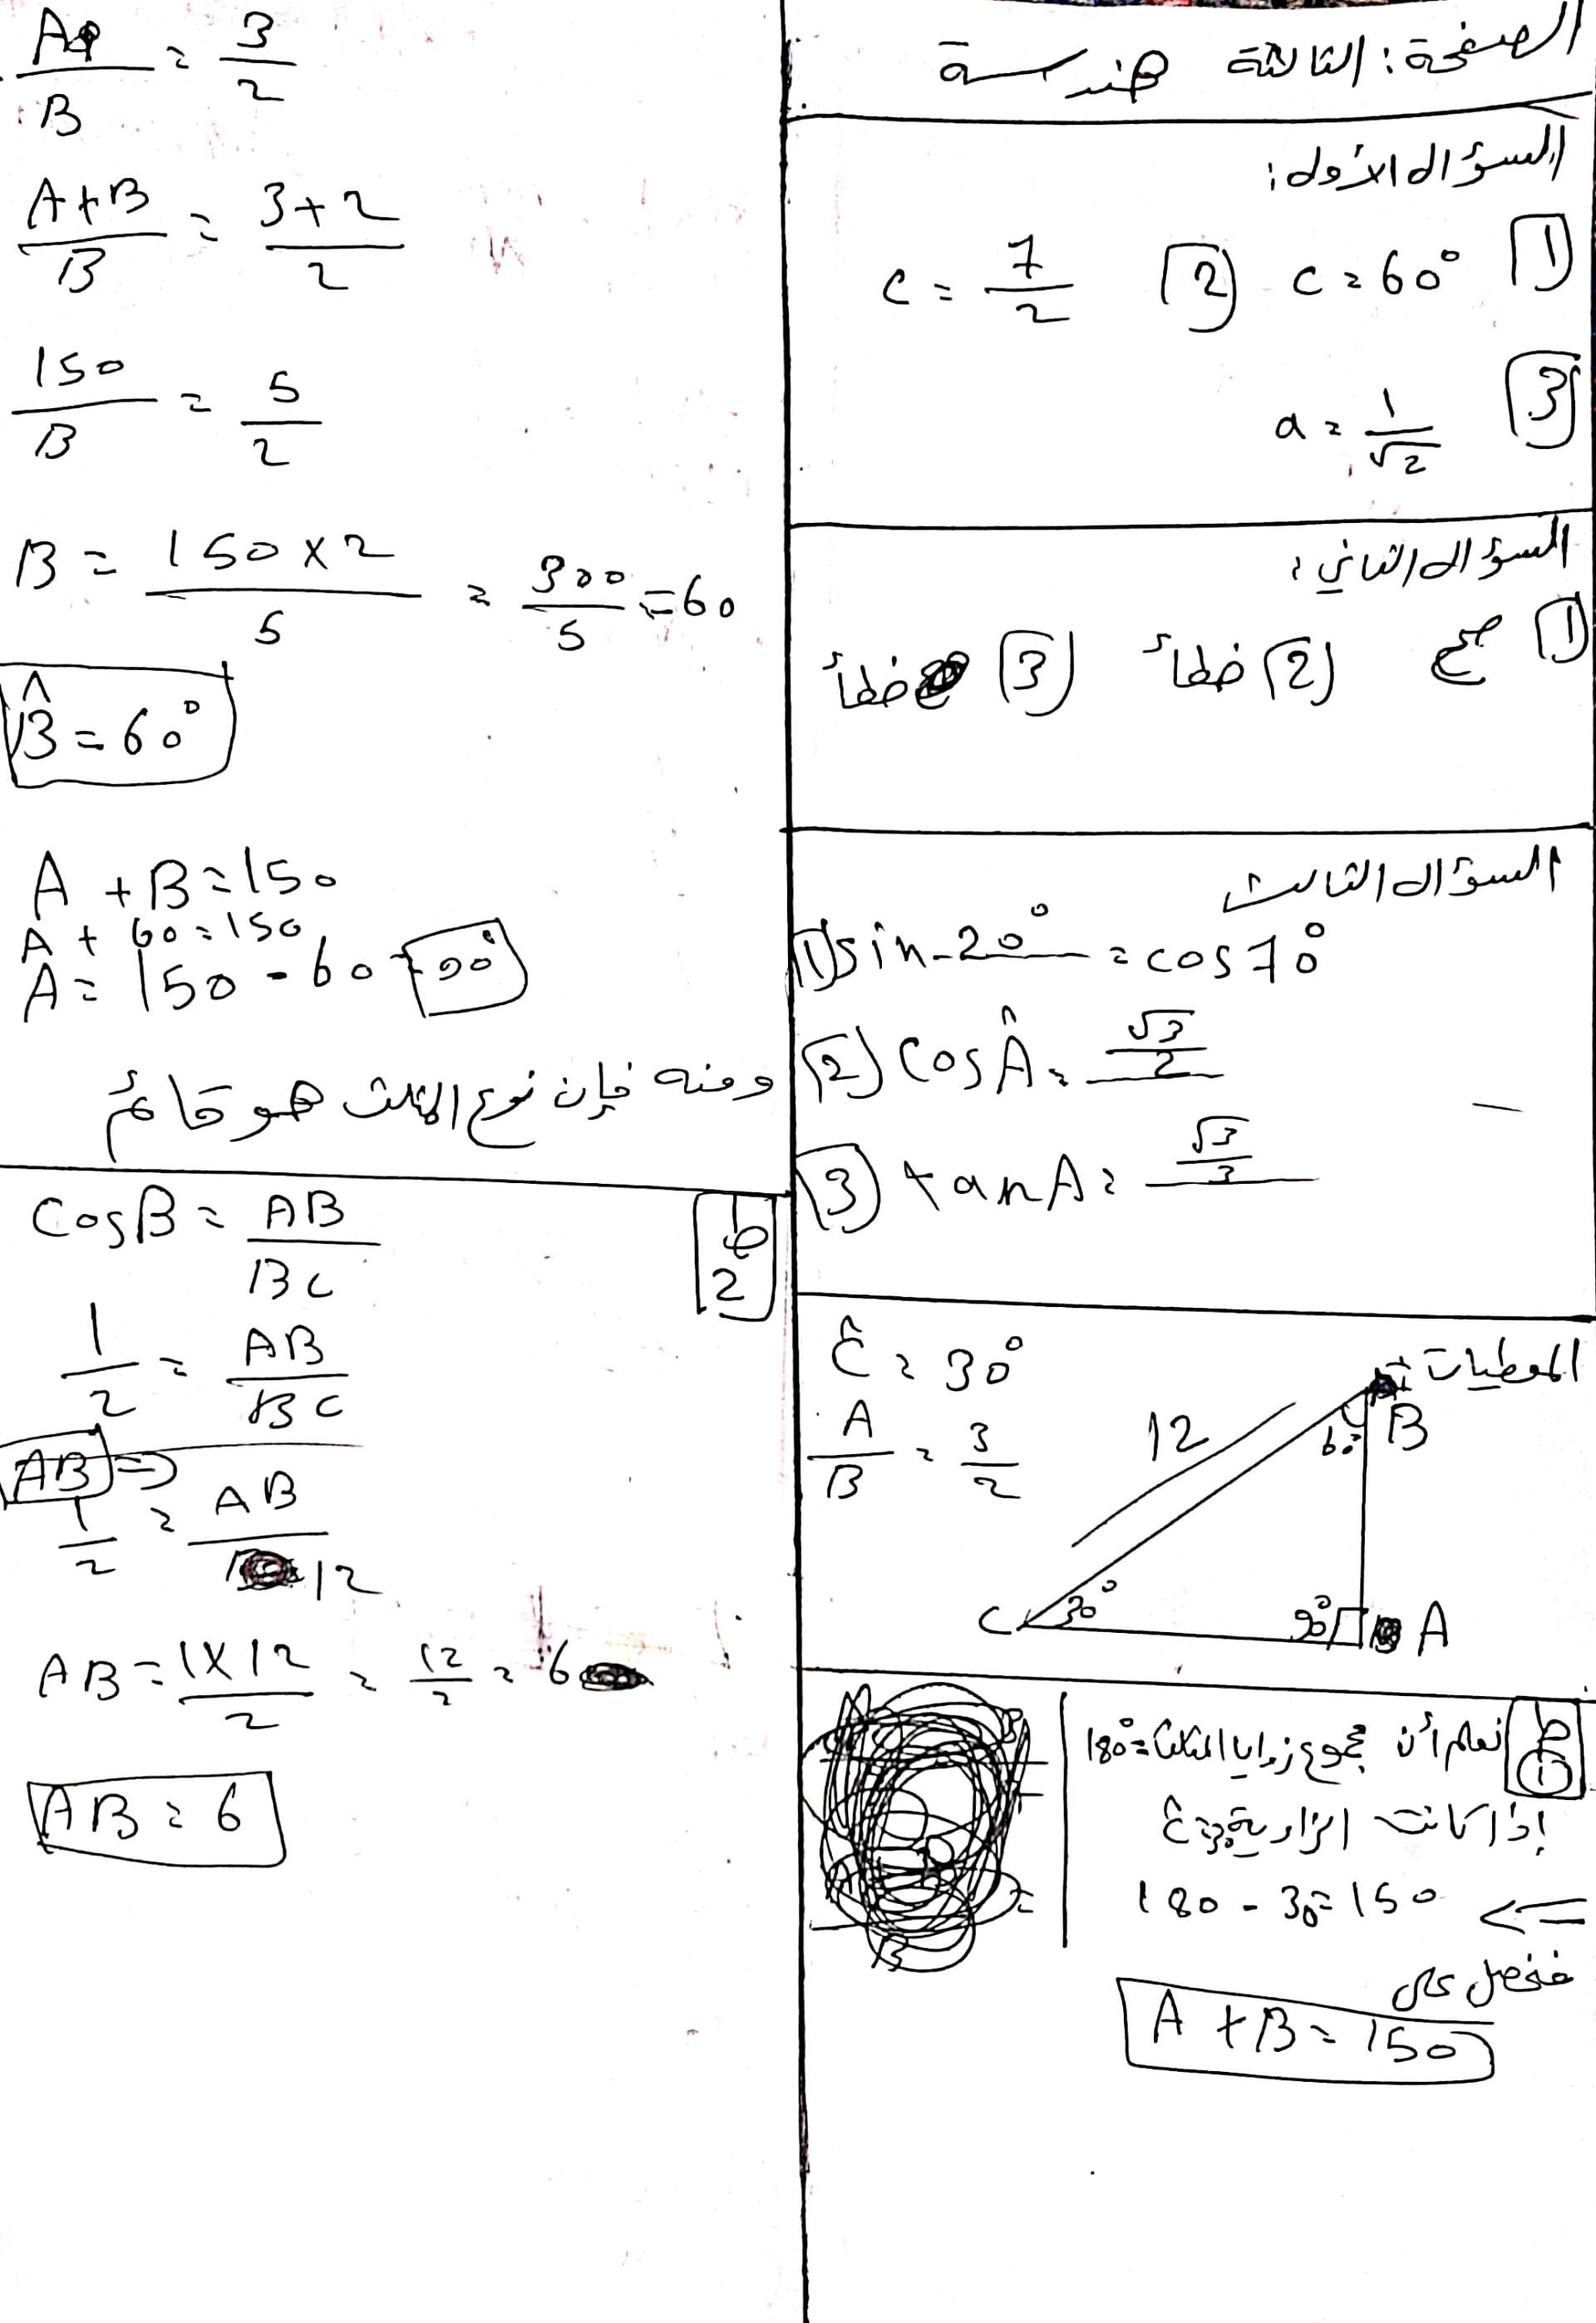 الصفحة: الثالثة هندسة
السؤال الأول:
1 c = 60° 2 c = 7/2
3 a = 1/√2
السؤال الثاني:
1 صح 2 خطأ 3 خطأ
السؤال الثالث
1 sin 20° = cos 70°
2 cos Â = √3/2
3 tan A = √3/3
المعطيات
Ĉ = 30°
A/B = 3/2
12
60°
B
C
30°
90°
A
ط 1 نعلم أن مجموع زوايا المثلث = 180°
إذا كانت الزاوية
180 - 30 = 150 <=
فنحصل على
A + B = 150
A/B = 3/2
A+B/B = 3+2/2
150/B = 5/2
B = 150×2/5 = 300/5 = 60
B̂ = 60°
A + B = 150
A + 60 = 150
A = 150 - 60 = 90°
ومنه فإن نوع المثلث هو قائم
ط 2
Cos B = AB/BC
1/2 = AB/BC
AB =>
1/2 = AB/12
AB = 1×12/2 = 12/2 = 6
AB = 6